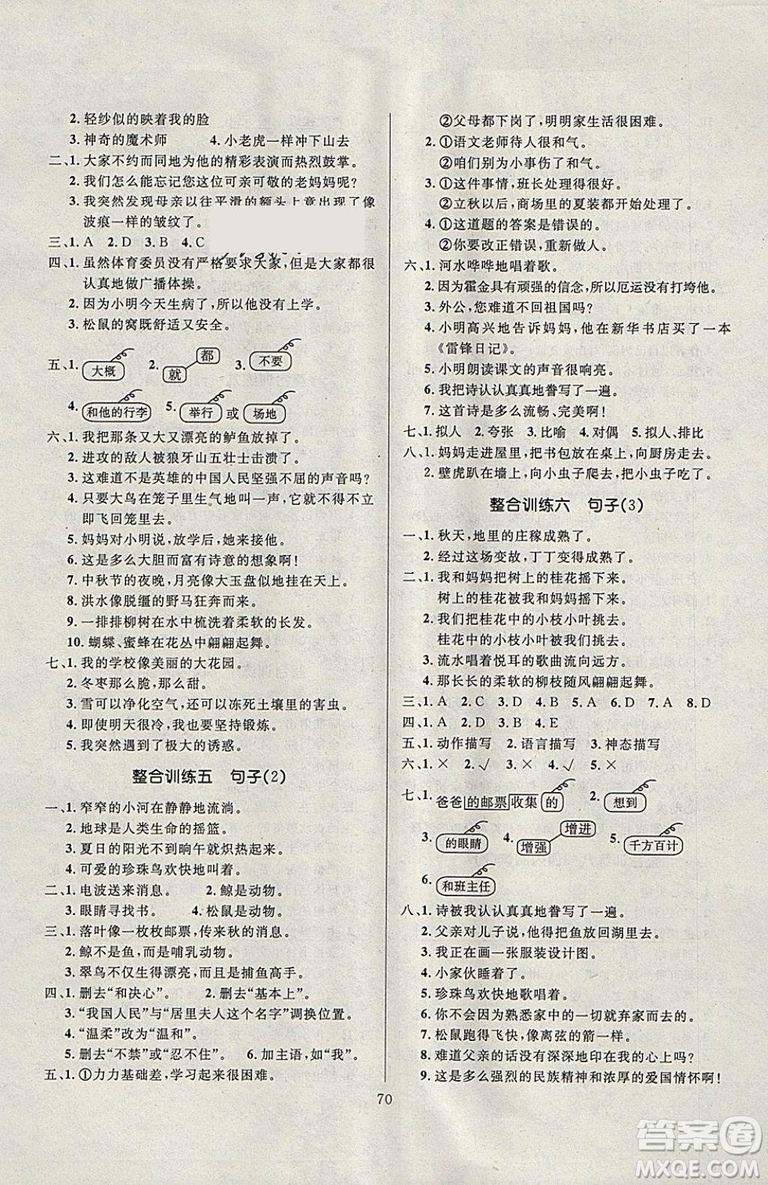 2. 轻纱似的映着我的脸
3. 神奇的魔术师 4. 小老虎一样冲下山去
二、1. 大家不约而同地为他的精彩表演而热烈鼓掌。
2. 我们怎么能忘记您这位可亲可敬的老妈妈呢?
3. 我突然发现母亲以往平滑的额头上竟出现了像
波痕一样的皱纹了。
三、1. A 2. D 3. B 4. C
四、1. 虽然体育委员没有严格要求大家,但是大家都很
认真地做广播体操。
2. 因为小明今天生病了,所以他没有上学。
3. 松鼠的窝既舒适又安全。
五、1. 大概 2. 就 都 3. 不要
4. 和他的行李 5. 举行 或 场地
六、1. 我把那条又大又漂亮的鲈鱼放掉了。
2. 进攻的敌人被狼牙山五壮士击溃了。
3. 这难道不是英雄的中国人民坚强不屈的声音吗?
4. 只要大鸟在笼子里生气地叫一声,它就会立
即飞回笼里来。
5. 妈妈对小明说,放学后,她来接他。
6. 这是多么大胆而富有诗意的想象啊!
7. 中秋节的夜晚,月亮像大玉盘似地挂在天上。
8. 洪水像脱缰的野马狂奔而来。
9. 一排排柳树在水中梳洗着柔软的长发。
10. 蝴蝶、蜜蜂在花丛中翩翩起舞。
七、1. 我的学校像美丽的大花园。
2. 冬枣那么脆,那么甜。
3. 雪可以净化空气,还可以冻死土壤里的害虫。
4. 即使明天很冷,我也要坚持锻炼。
5. 我突然遇到了极大的诱惑。
整合训练五 句子(2)
一、1. 窄窄的小河在静静地流淌。
2. 地球是人类生命的摇篮。
3. 夏日的阳光不到晌午就炽热起来。
4. 可爱的珍珠鸟欢快地叫着。
二、1. 电波送来消息。 2. 鲸是动物。
3. 眼睛寻找书。 4. 松鼠是动物。
三、1. 落叶像一枚枚邮票,传来秋的消息。
2. 鲸不是鱼,而是哺乳动物。
3. 翠鸟不但生得漂亮,而且还是捕鱼高手。
四、1. 删去“和决心”。 2. 删去“基本上”。
3. “我国人民”与“居里夫人这个名字”调换位置。
4. “温柔”改为“温和”。
5. 删去“不禁”或“忍不住”。 6. 加主语,如“我”。
五、1. ①力力基础差,学习起来很困难。
②父母都下岗了,明明家生活很困难。
2. ①语文老师待人很和气。
②咱们别为这一点小事伤了和气。
3. ①这件事情,班长处理得很好。
②立秋以后,商场里的夏装都在处理。
4. ①这道题的答案是错误的。
②你要改正错误,重新做人。
六、1. 河水哗哗地唱着歌。
2. 因为霍金具有顽强的信念,所以厄运没有打垮他。
3. 外公,您难道不回祖国吗?
4. 小明高兴地告诉妈妈,他在新华书店买了一本
《雷锋日记》。
5. 小明朗读课文的声音很响亮。
6. 我把诗认认真真地誊写了一遍。
7. 这首诗是多么流畅、完美啊!
七、1. 拟人 2. 夸张 3. 比喻 4. 对偶 5. 拟人、排比
八、1. 妈妈走进屋里,把书包放在桌上,向厨房走去。
2. 壁虎趴在墙上,向小虫子爬去,把小虫子吃了。
整合训练六 句子(3)
一、1. 秋天,地里的庄稼成熟了。
2. 经过这场变故,丁丁变得成熟了。
二、1. 我和妈妈把树上的桂花摇下来。
树上的桂花被我和妈妈摇下来。
2. 我们把桂花中的小枝小叶挑去。
桂花中的小枝小叶被我们挑去。
3. 流水唱着悦耳的歌曲流向远方。
4. 那长长的柔软的柳枝随风翩翩起舞。
三、1. A 2. C 3. D 4. C 5. B 6. A 7. C 8. D
四、1. A 2. D 3. C 4. B 4. E
五、1. 动作描写 2. 语言描写 3. 神态描写
六、1. × 2. √ 3. × 4. √
七、1. 爸爸的邮票收集的 2. 想到
3. 的眼睛 4. 增强 增进 5. 千方百计
6. 和班主任
八、1. 诗被我认认真真地誊写了一遍。
2. 父亲对儿子说,他得把鱼放回湖里去。
3. 我正在画一张服装设计图。
4. 小家伙睡着了。
5. 珍珠鸟欢快地歌唱着。
6. 你不会因为熟悉家中的一切就弃家而去的。
7. 松鼠跑得飞快,像离弦的箭一样。
8. 难道父亲的话没有深深地印在我的心上吗?
9. 这是多么强烈的民族精神和浓厚的爱国情怀啊!
70
答案圈
MXQE.COM